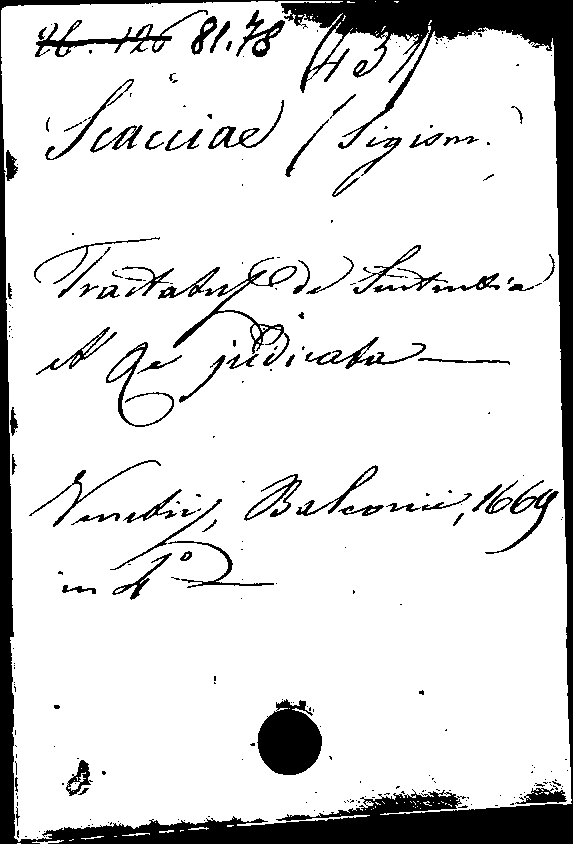 26.126 81.78 (431)
Scacciae (Sigism.)
Tractatus de Sententia
et Re judicata
Venetiis, Balconii, 1669
in 4°